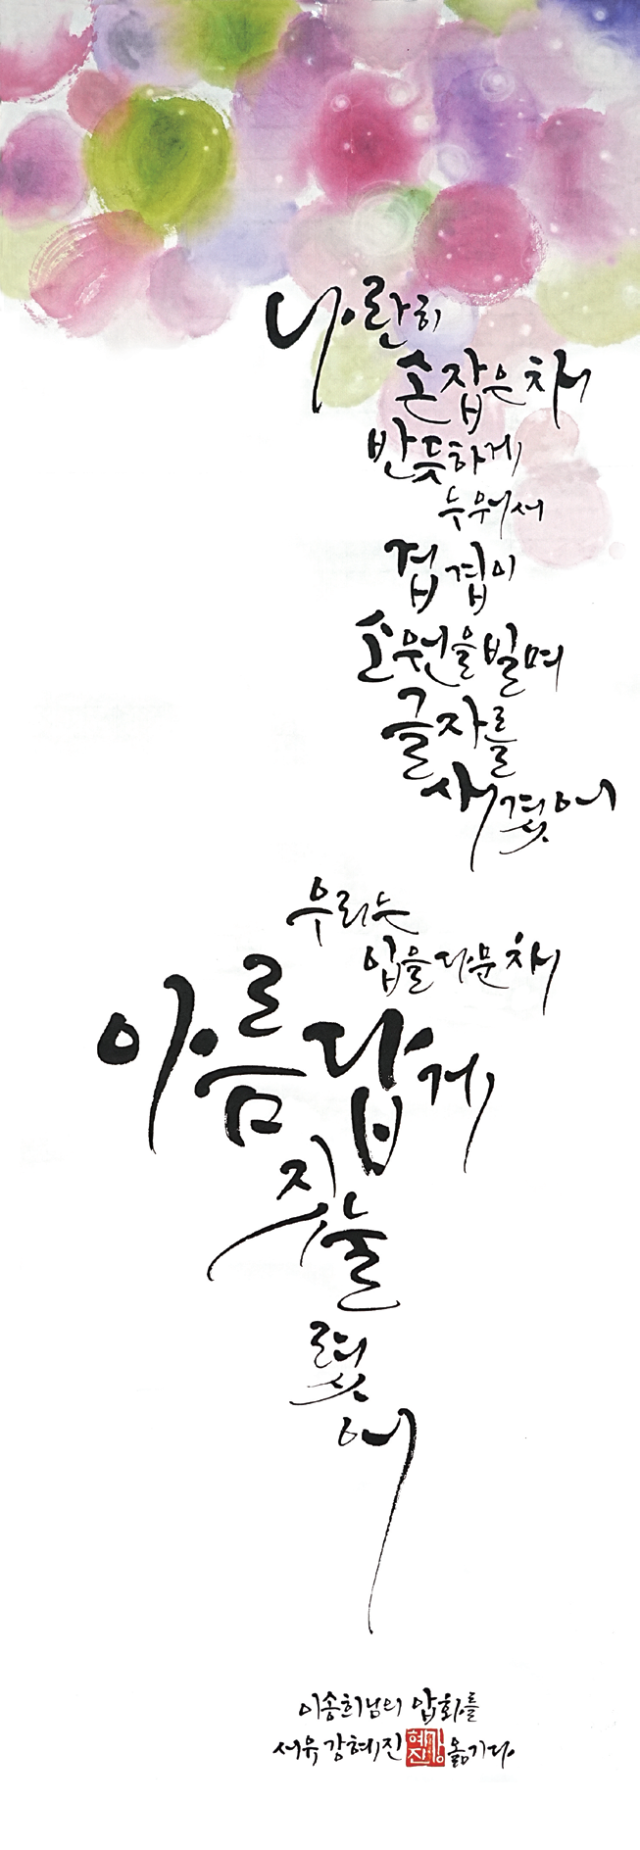 나란히
손잡은 채
반듯하게
누워서
겹겹이
소원을 빌며
글자를
새겼어
우리는
입을 다문 채
아름답게
짓눌
렸
어
이송희님의 압화를
서유 강혜진 혜진강 옮기다.